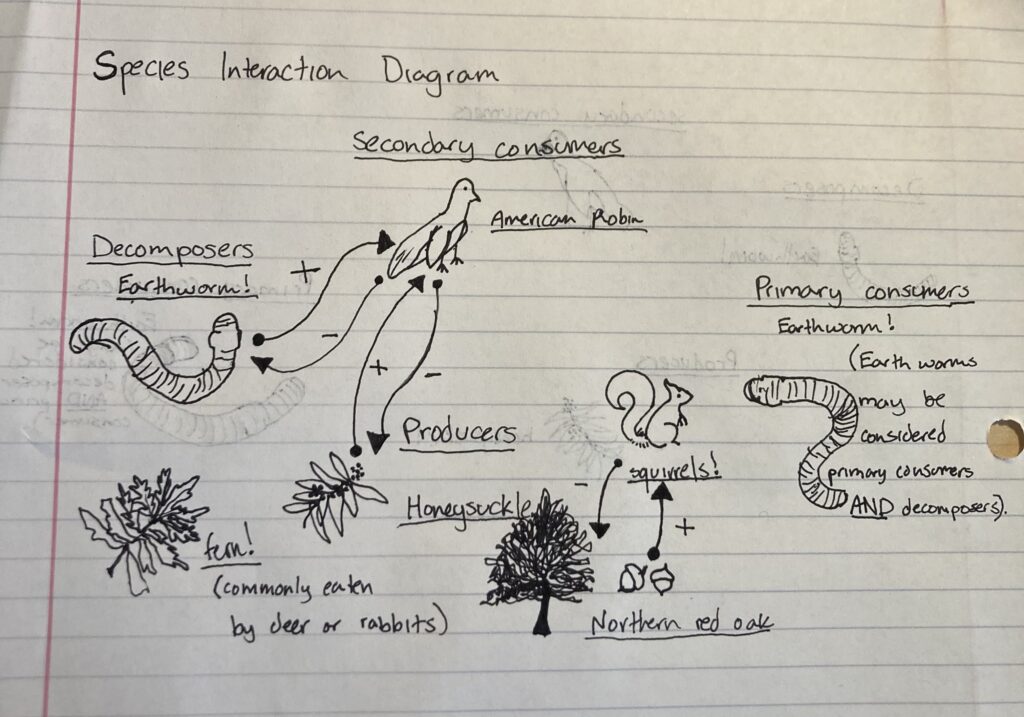 Species Interaction Diagram
Secondary consumers
American Robin
Decomposers
Earthworm!
+
-
+
-
Primary consumers
Earthworm!
(Earth worms
may be
considered
primary consumers
AND decomposers).
Producers
Honeysuckle
squirrels!
-
+
fern!
(commonly eaten
by deer or rabbits)
Northern red oak